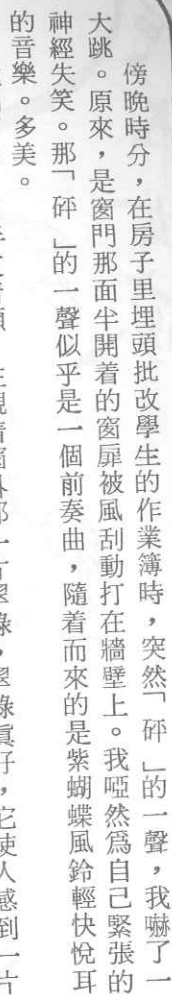 傍晚時分，在房子里埋頭批改學生的作業簿時，突然「砰」的一聲，我嚇了一
大跳。原來，是窗門那面半開着的窗扉被風刮動打在牆壁上。我啞然爲自己緊張的
神經失笑。那「砰」的一聲似乎是一個前奏曲，隨着而來的是紫蝴蝶風鈴輕快悅耳
的音樂。多美。
窗外那一片翠綠，翠綠眞好，它使人感到一片